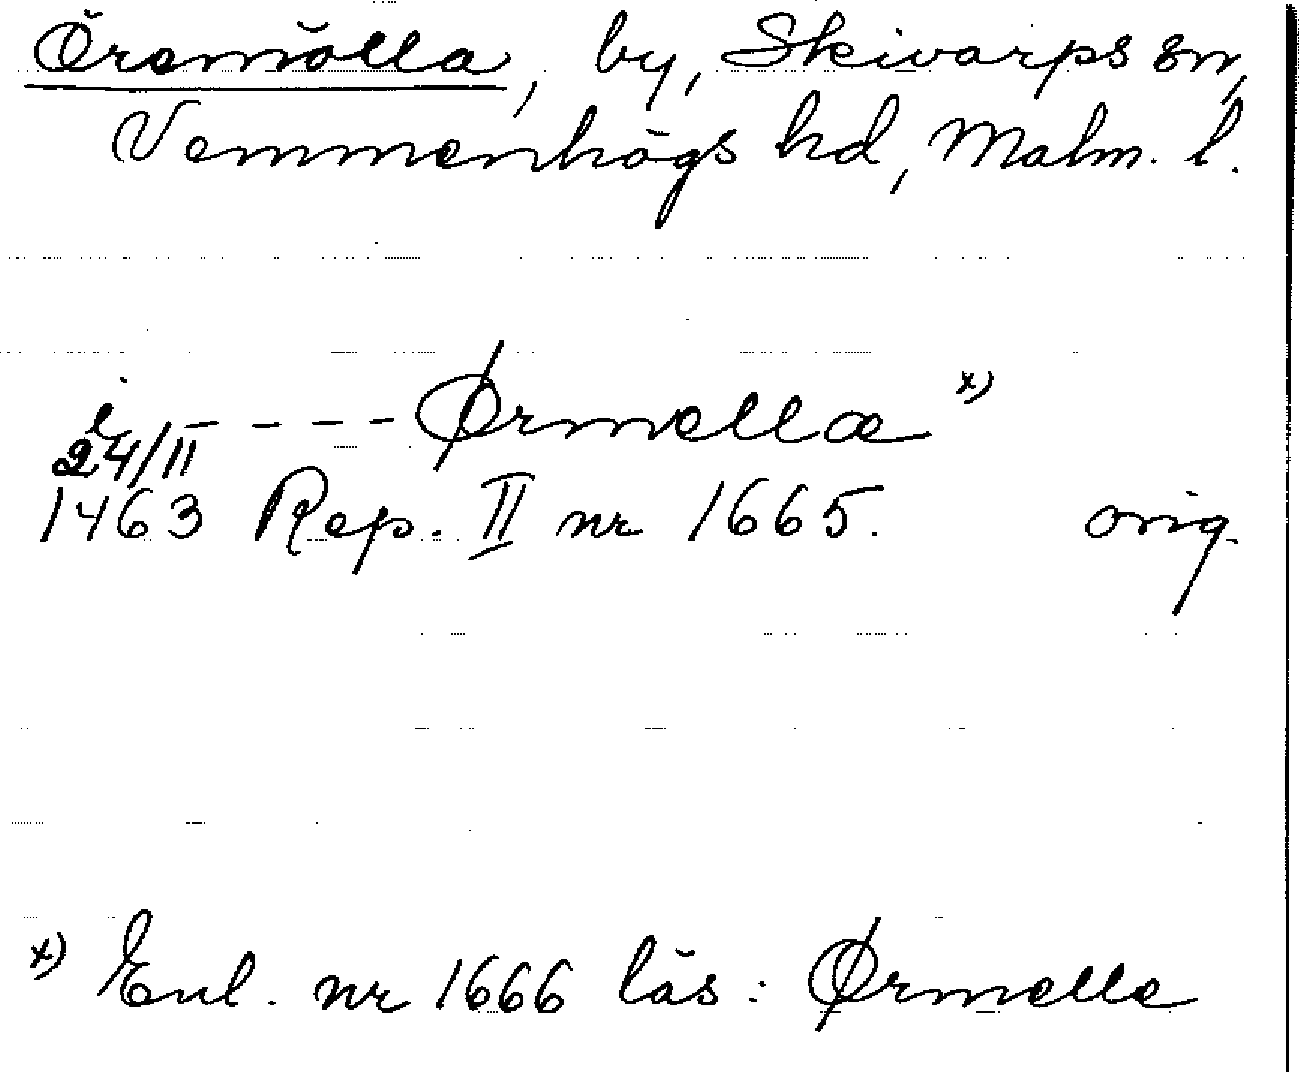 Öremölla, by, Skivarps sn,
Vemmenhögs hd, Malm. l.
i - - - - Ørmellæ x)
24/II
1463 Rep. II nr 1665. orig.
x) Enl. nr 1666 läs: Ørmelle